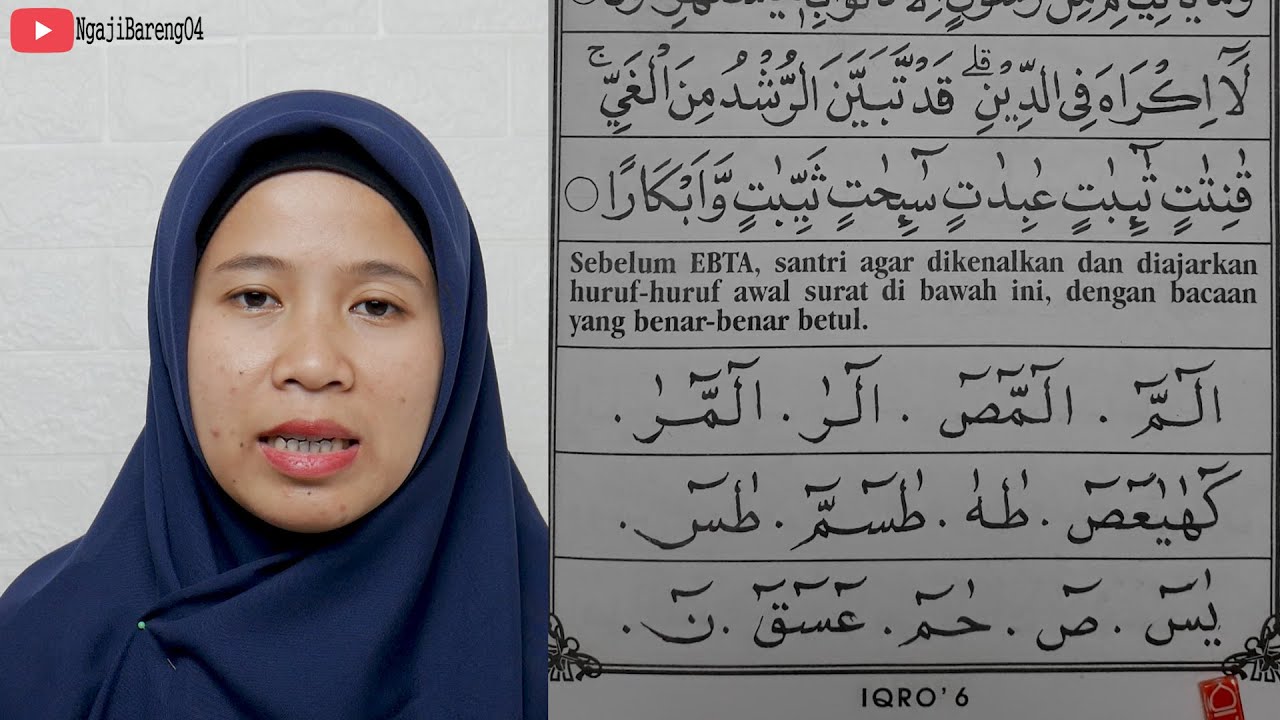 NgajiBareng04
لَآ اِكْرَاهَ فِى الدِّيْنِ ۗ قَدْ تَّبَيَّنَ الرُّشْدُ مِنَ الْغَيِّ ۚ
قٰنِتٰتٍ تٰۤىِٕبٰتٍ عٰبِدٰتٍ سٰۤىِٕحٰتٍ ثَيِّبٰتٍ وَّاَبْكَارًا ○
Sebelum EBTA, santri agar dikenalkan dan diajarkan
huruf-huruf awal surat di bawah ini, dengan bacaan
yang benar-benar betul.
الۤمّۤ . الۤمّۤصۤ . الۤرٰ . الۤمّۤرٰ .
كۤهٰيٰعۤصۤ . طٰهٰ . طٰسۤمّۤ . طٰسۤ .
يٰسۤ . صۤ . حٰمۤ . عۤسۤقۤ . نۤ .
IQRO' 6